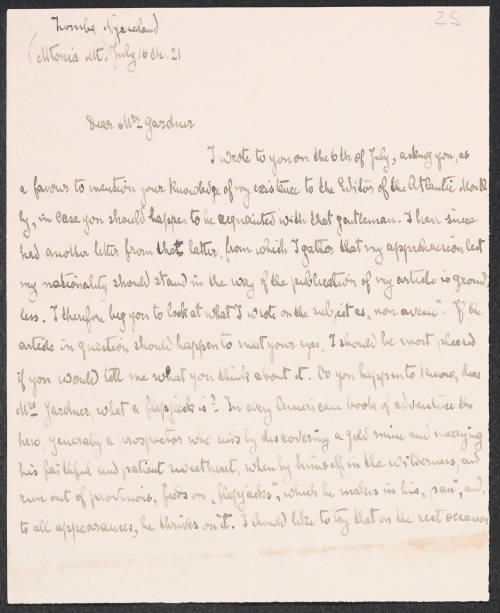 25
Zomba Nyasaland
(Mtonia Mt.) July 16th. 21
Dear Mrs. Gardner
I wrote to you on the 6th of July, asking you, as
a favour to mention your knowledge of my existence to the Editor of the Atlantic Month
ly, in case you should happen to be acquainted with that gentleman. I have since
had another letter from that latter, from which I gather that my apprehension lest
my nationality should stand in the way of the publication of my article is ground
less. I therefore beg you to look at what I wrote on the subject as "non avenu". If the
article in question should happen to meet your eyes, I should be most pleased
if you would tell me what you think about it. Do you happen to know, dear
Mrs. Gardner what a flapjack is? In every American book of adventure the
hero, generally a prospector who ends by discovering a gold mine and marrying
his faithful and patient sweetheart, when by himself in the wilderness, and
run out of provisions, feeds on "flapjacks", which he makes in his "pan", and,
to all appearances, he thrives on it. I should like to try that on the next occasion